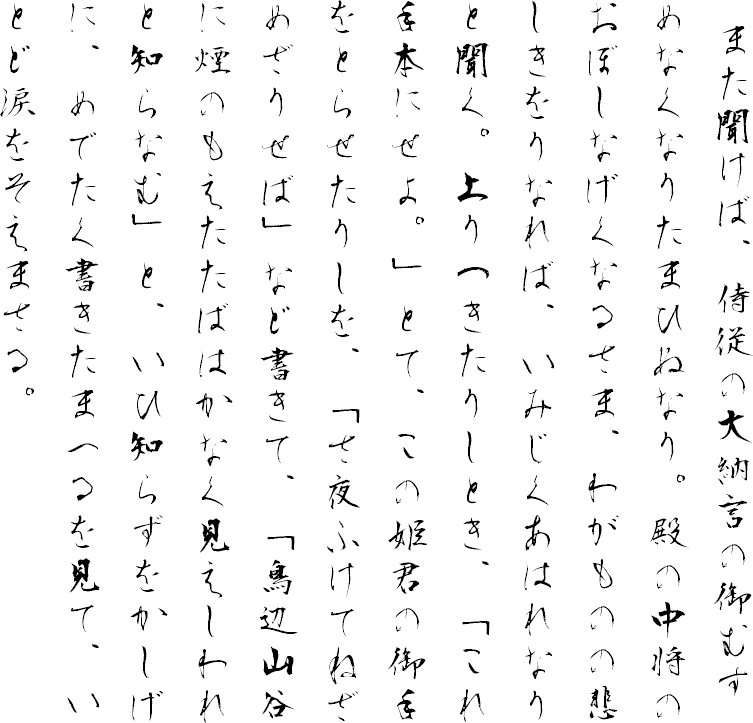 また聞けば、侍従の大納言の御むす
めなくなりたまひぬなり。殿の中将の
おぼしなげくなるさま、わがものの悲
しきをりなれば、いみじくあはれなり
と聞く。上りつきたりしとき、「これ
手本にせよ。」とて、この姫君の御手
をとらせたりしを、「さ夜ふけてねざ
めざりせば」など書きて、「鳥辺山谷
に煙のもえたたばはかなく見えしわれ
と知らなむ」と、いひ知らずをかしげ
に、めでたく書きたまへるを見て、い
とど涙をそえまさる。